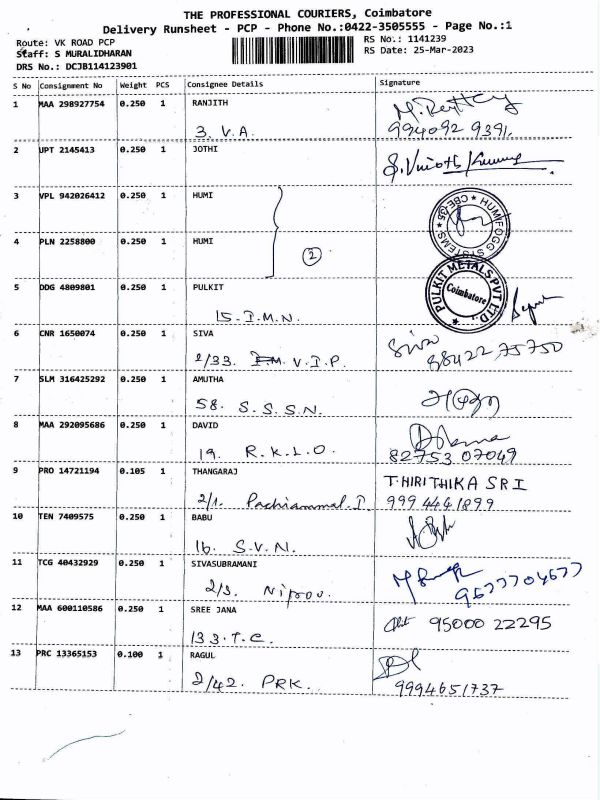 THE PROFESSIONAL COURIERS, Coimbatore
Delivery Runsheet - PCP - Phone No.:0422-3505555 - Page No.:1
Route: VK ROAD PCP
Staff: S MURALIDHARAN
DRS No.: DCJB114123901
RS No.: 1141239
RS Date: 25-Mar-2023
S No Consignment No Weight PCS Consignee Details Signature
1 MAA 298927754 0.250 1 RANJITH
3. V.A. 994092 9391.
2 UPT 2145413 0.250 1 JOTHI
3 VPL 942026412 0.250 1 HUMI
HUMIFOGG SYSTEMS
4 PLN 2258800 0.250 1 HUMI
2
5 DDG 4809801 0.250 1 PULKIT
PULKIT METALS PVT LTD.
Coimbatore
15. I.M.N.
6 CNR 1650074 0.250 1 SIVA Siva
2/33. V.I.P. 88422 75750
7 SLM 316425292 0.250 1 AMUTHA
58. S.S.S.N.
8 MAA 292095686 0.250 1 DAVID
19. R.K.L.O. 82753 07049
9 PRO 14721194 0.105 1 THANGARAJ T.HIRITHIKA SRI
2/1. Pachiammal. I 999 4441899
10 TEN 7409575 0.250 1 BABU
16. S.V.N.
11 TCG 40432929 0.250 1 SIVASUBRAMANI
2/3. 9677704677
12 MAA 600110586 0.250 1 SREE JANA
133. T.C. 95000 22295
13 PRC 13365153 0.100 1 RAGUL
2/42. PRK. 9994651737